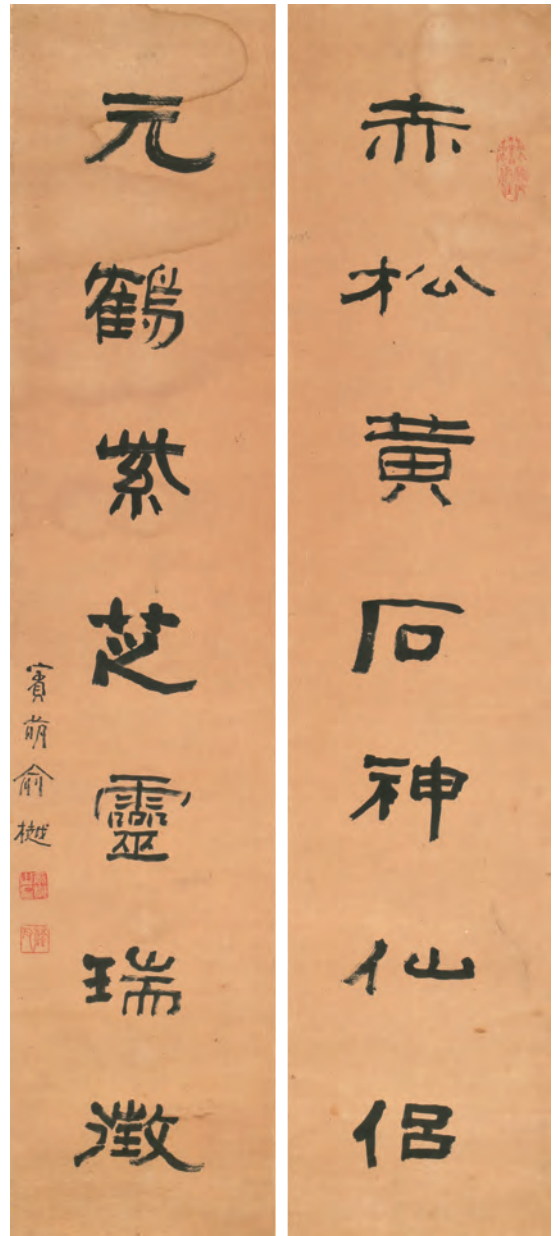 赤松黄石神仙侣
元鶴紫芝靈瑞徵
賓萌俞樾